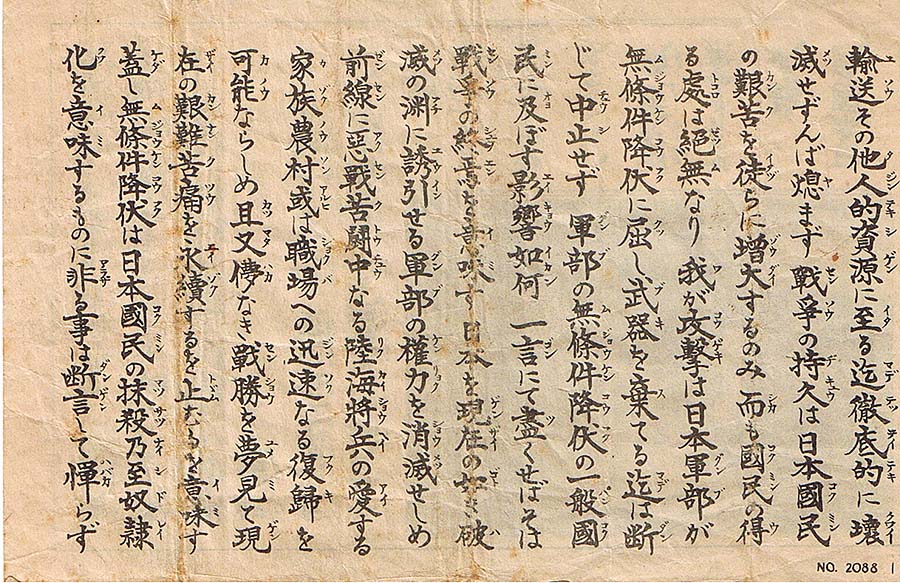 輸送その他人的資源に至る迄徹底的に壊
滅せずんば熄まず 戰爭の持久は日本國民
の艱苦を徒らに増大するのみ 而も國民の得
る處は絶無なり 我が攻撃は日本軍部が
無條件降伏に屈し武器を棄てる迄は断
じて中止せず 軍部の無條件降伏の一般國
民に及ぼす影響如何 一言にて盡くせばそは
戰爭の終焉を意味す 日本を現在の如き破
滅の渊に誘引せる軍部の權力を消滅せしめ
前線に惡戰苦闘中なる陸海將兵の愛する
家族農村或は職場への迅速なる復歸を
可能ならしめ且又儚なき戰勝を夢見て現
在の艱難苦痛を永續するを止むるを意味す
蓋し無條件降伏は日本國民の抹殺乃至奴隷
化を意味するものに非る事は断言して憚らず
NO. 2088